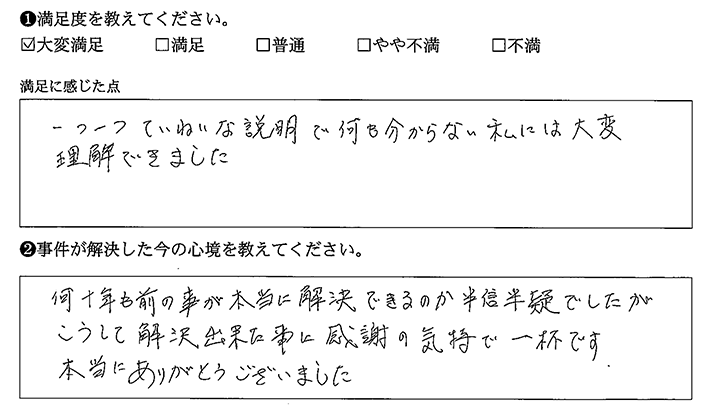 ❶満足度を教えてください。
☑大変満足 □満足 □普通 □やや不満 □不満
満足に感じた点
一つ一つていねいな説明で何も分からない私には大変
理解できました
❷事件が解決した今の心境を教えてください。
何十年も前の事が本当に解決できるのか半信半疑でしたが
こうして解決出来た事に感謝の気持で一杯です
本当にありがとうございました